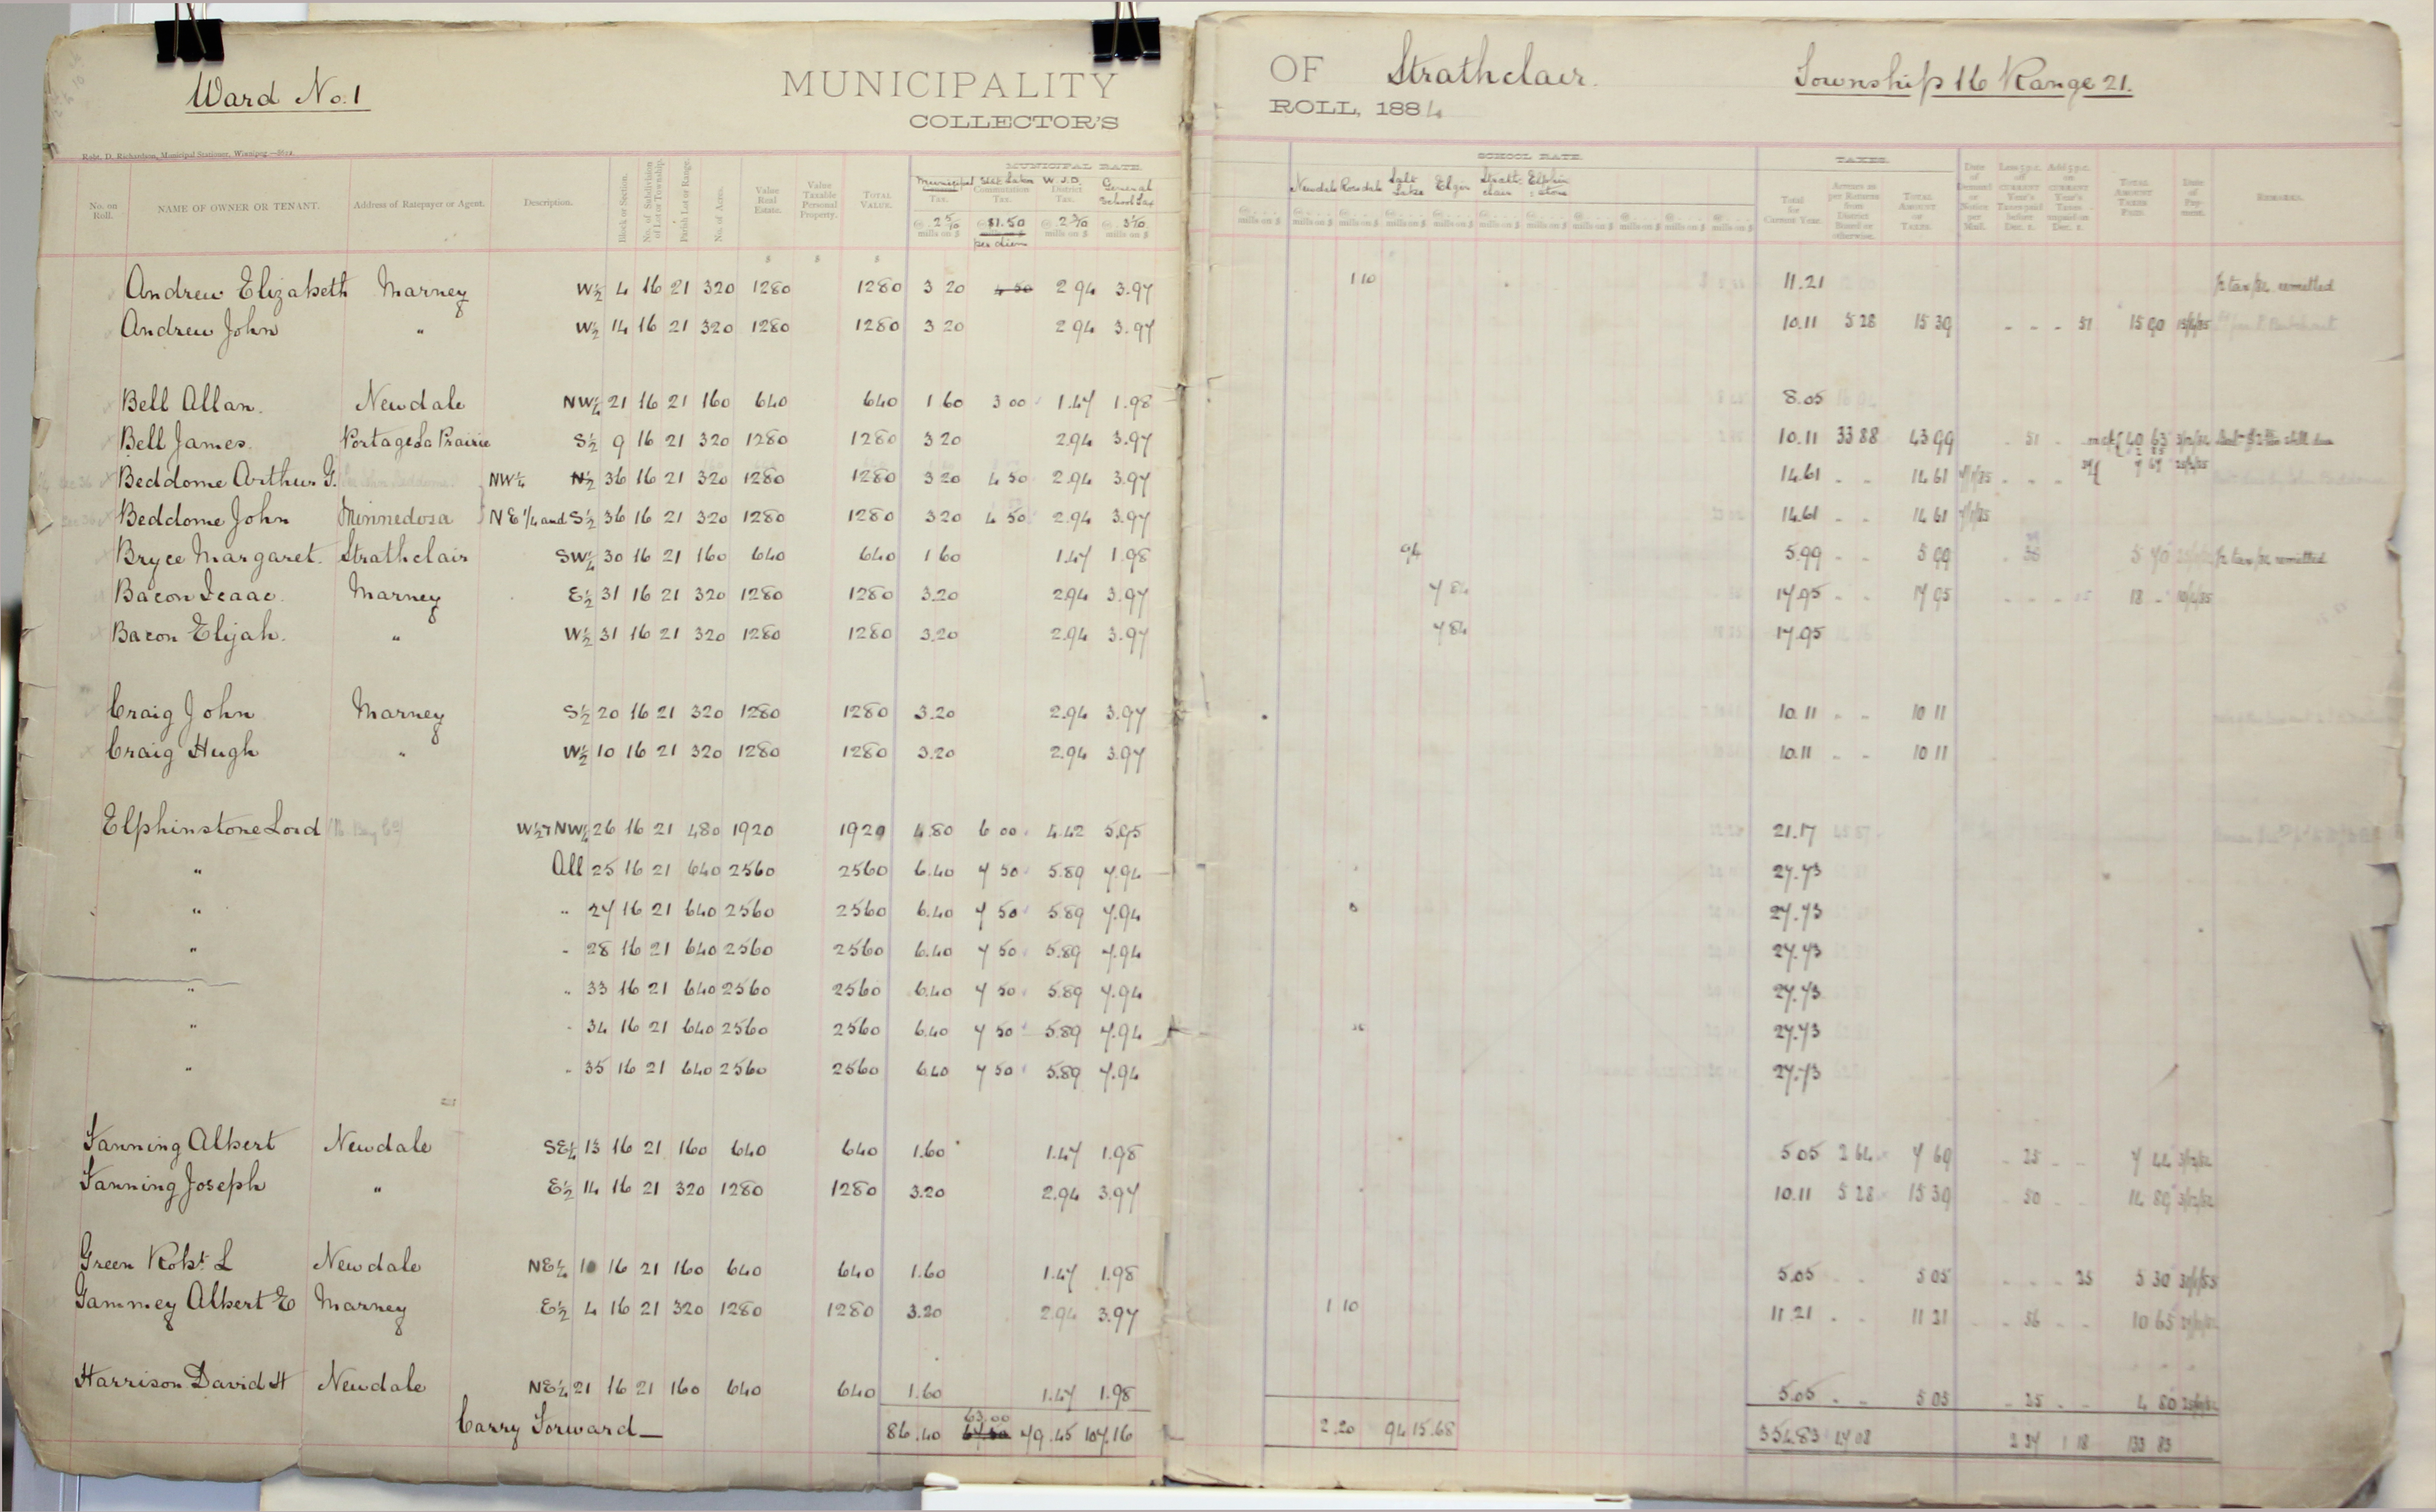 Ward No. 1 MUNICIPALITY OF Strathclair. Township 16 Range 21.
COLLECTOR'S ROLL, 1884
Robt. D. Richardson, Municipal Stationer, Winnipeg
MUNICIPAL RATE. SCHOOL RATE. TAXES.
No. on Roll. NAME OF OWNER OR TENANT. Address of Ratepayer or Agent. Description. Block or Section. No. of Subdivision of Lot or Township. Parish Lot or Range. No. of Acres. Value Real Estate. Value Taxable Personal Property. TOTAL VALUE. Municipal Tax. Commutation Tax. W. J. D. District Tax. General School Tax Newdale Rosedale Salt Lake Elgin Strathclair Elphinstone Total for Current Year. Arrears as per Returns from District Board or otherwise. TOTAL AMOUNT OF TAXES. Date of Demand or Notice per Mail. Less 5 p.c. off CURRENT Year's Taxes paid before Dec. 1. Add 5 p.c. on CURRENT Year's Taxes unpaid on Dec. 1. TOTAL AMOUNT TAXES PAID. Date of Payment. REMARKS.
@ 2 5/10 mills on $ @ $1.50 per diem @ 2 3/10 mills on $ @ 3 1/10 mills on $
Andrew Elizabeth Marney W½ 4 16 21 320 1280 1280 3 20 4 50 2 94 3.97 1 10 11.21 ½ tax/84 remitted
Andrew John " W½ 14 16 21 320 1280 1280 3 20 2 94 3.97 10.11 5 28 15 39 - - - 51 15 90
Bell Allan. Newdale NW¼ 21 16 21 160 640 640 1 60 3 00 1.47 1.98 8.05
Bell James. Portage La Prairie S½ 9 16 21 320 1280 1280 3 20 2.94 3.97 10.11 33 88 43 99 51 40 63
Beddome Arthur G. NW¼ N½ 36 16 21 320 1280 1280 3 20 4 50 2.94 3.97 14.61 - - 14 61
Beddome John Minnedosa NE 1/4 and S½ 36 16 21 320 1280 1280 3 20 4 50 2.94 3.97 14.61 - - 14 61
Bryce Margaret. Strathclair SW¼ 30 16 21 160 640 640 1 60 1.47 1.98 94 5.99 - - 5 99 5 70 ½ tax/84 remitted
Bacon Isaac. Marney E½ 31 16 21 320 1280 1280 3.20 2.94 3.97 7 84 17.95 - - 17 95 18 -
Bacon Elijah. " W½ 31 16 21 320 1280 1280 3.20 2.94 3.97 7 84 17.95
Craig John Marney S½ 20 16 21 320 1280 1280 3.20 2.94 3.97 10.11 - - 10 11
Craig Hugh " W½ 10 16 21 320 1280 1280 3.20 2.94 3.97 10.11 - - 10 11
Elphinstone Lord W½ & NW¼ 26 16 21 480 1920 1920 4.80 6 00 4.42 5.95 21.17
" All 25 16 21 640 2560 2560 6.40 7 50 5.89 7.94 27.73
" " 27 16 21 640 2560 2560 6.40 7 50 5.89 7.94 27.73
" " 28 16 21 640 2560 2560 6.40 7 50 5.89 7.94 27.73
" " 33 16 21 640 2560 2560 6.40 7 50 5.89 7.94 27.73
" " 34 16 21 640 2560 2560 6.40 7 50 5.89 7.94 27.73
" " 35 16 21 640 2560 2560 6.40 7 50 5.89 7.94 27.73
Fanning Albert Newdale SE¼ 13 16 21 160 640 640 1.60 1.47 1.98 5 05 2 64 7 69 - 25 - - 7 44 3/12/84
Fanning Joseph " E½ 14 16 21 320 1280 1280 3.20 2.94 3.97 10.11 5 28 15 39 - 50 - - 14 89 3/12/84
Green Robt. L Newdale NE¼ 10 16 21 160 640 640 1.60 1.47 1.98 5.05 5 05 - - - 25 5 30
Gammey Albert E Marney E½ 4 16 21 320 1280 1280 3.20 2.94 3.97 1 10 11 21 - - 11 21 - 56 - - 10 65
Harrison David H Newdale NE¼ 21 16 21 160 640 640 1.60 1.47 1.98 5.05 - - 5 05 - 25 - - 4 80
Carry Forward 86.40 63.00 67.50 79.45 107.16 2.20 94 15.68 354.83 47 08 2 34 1 18 133 83